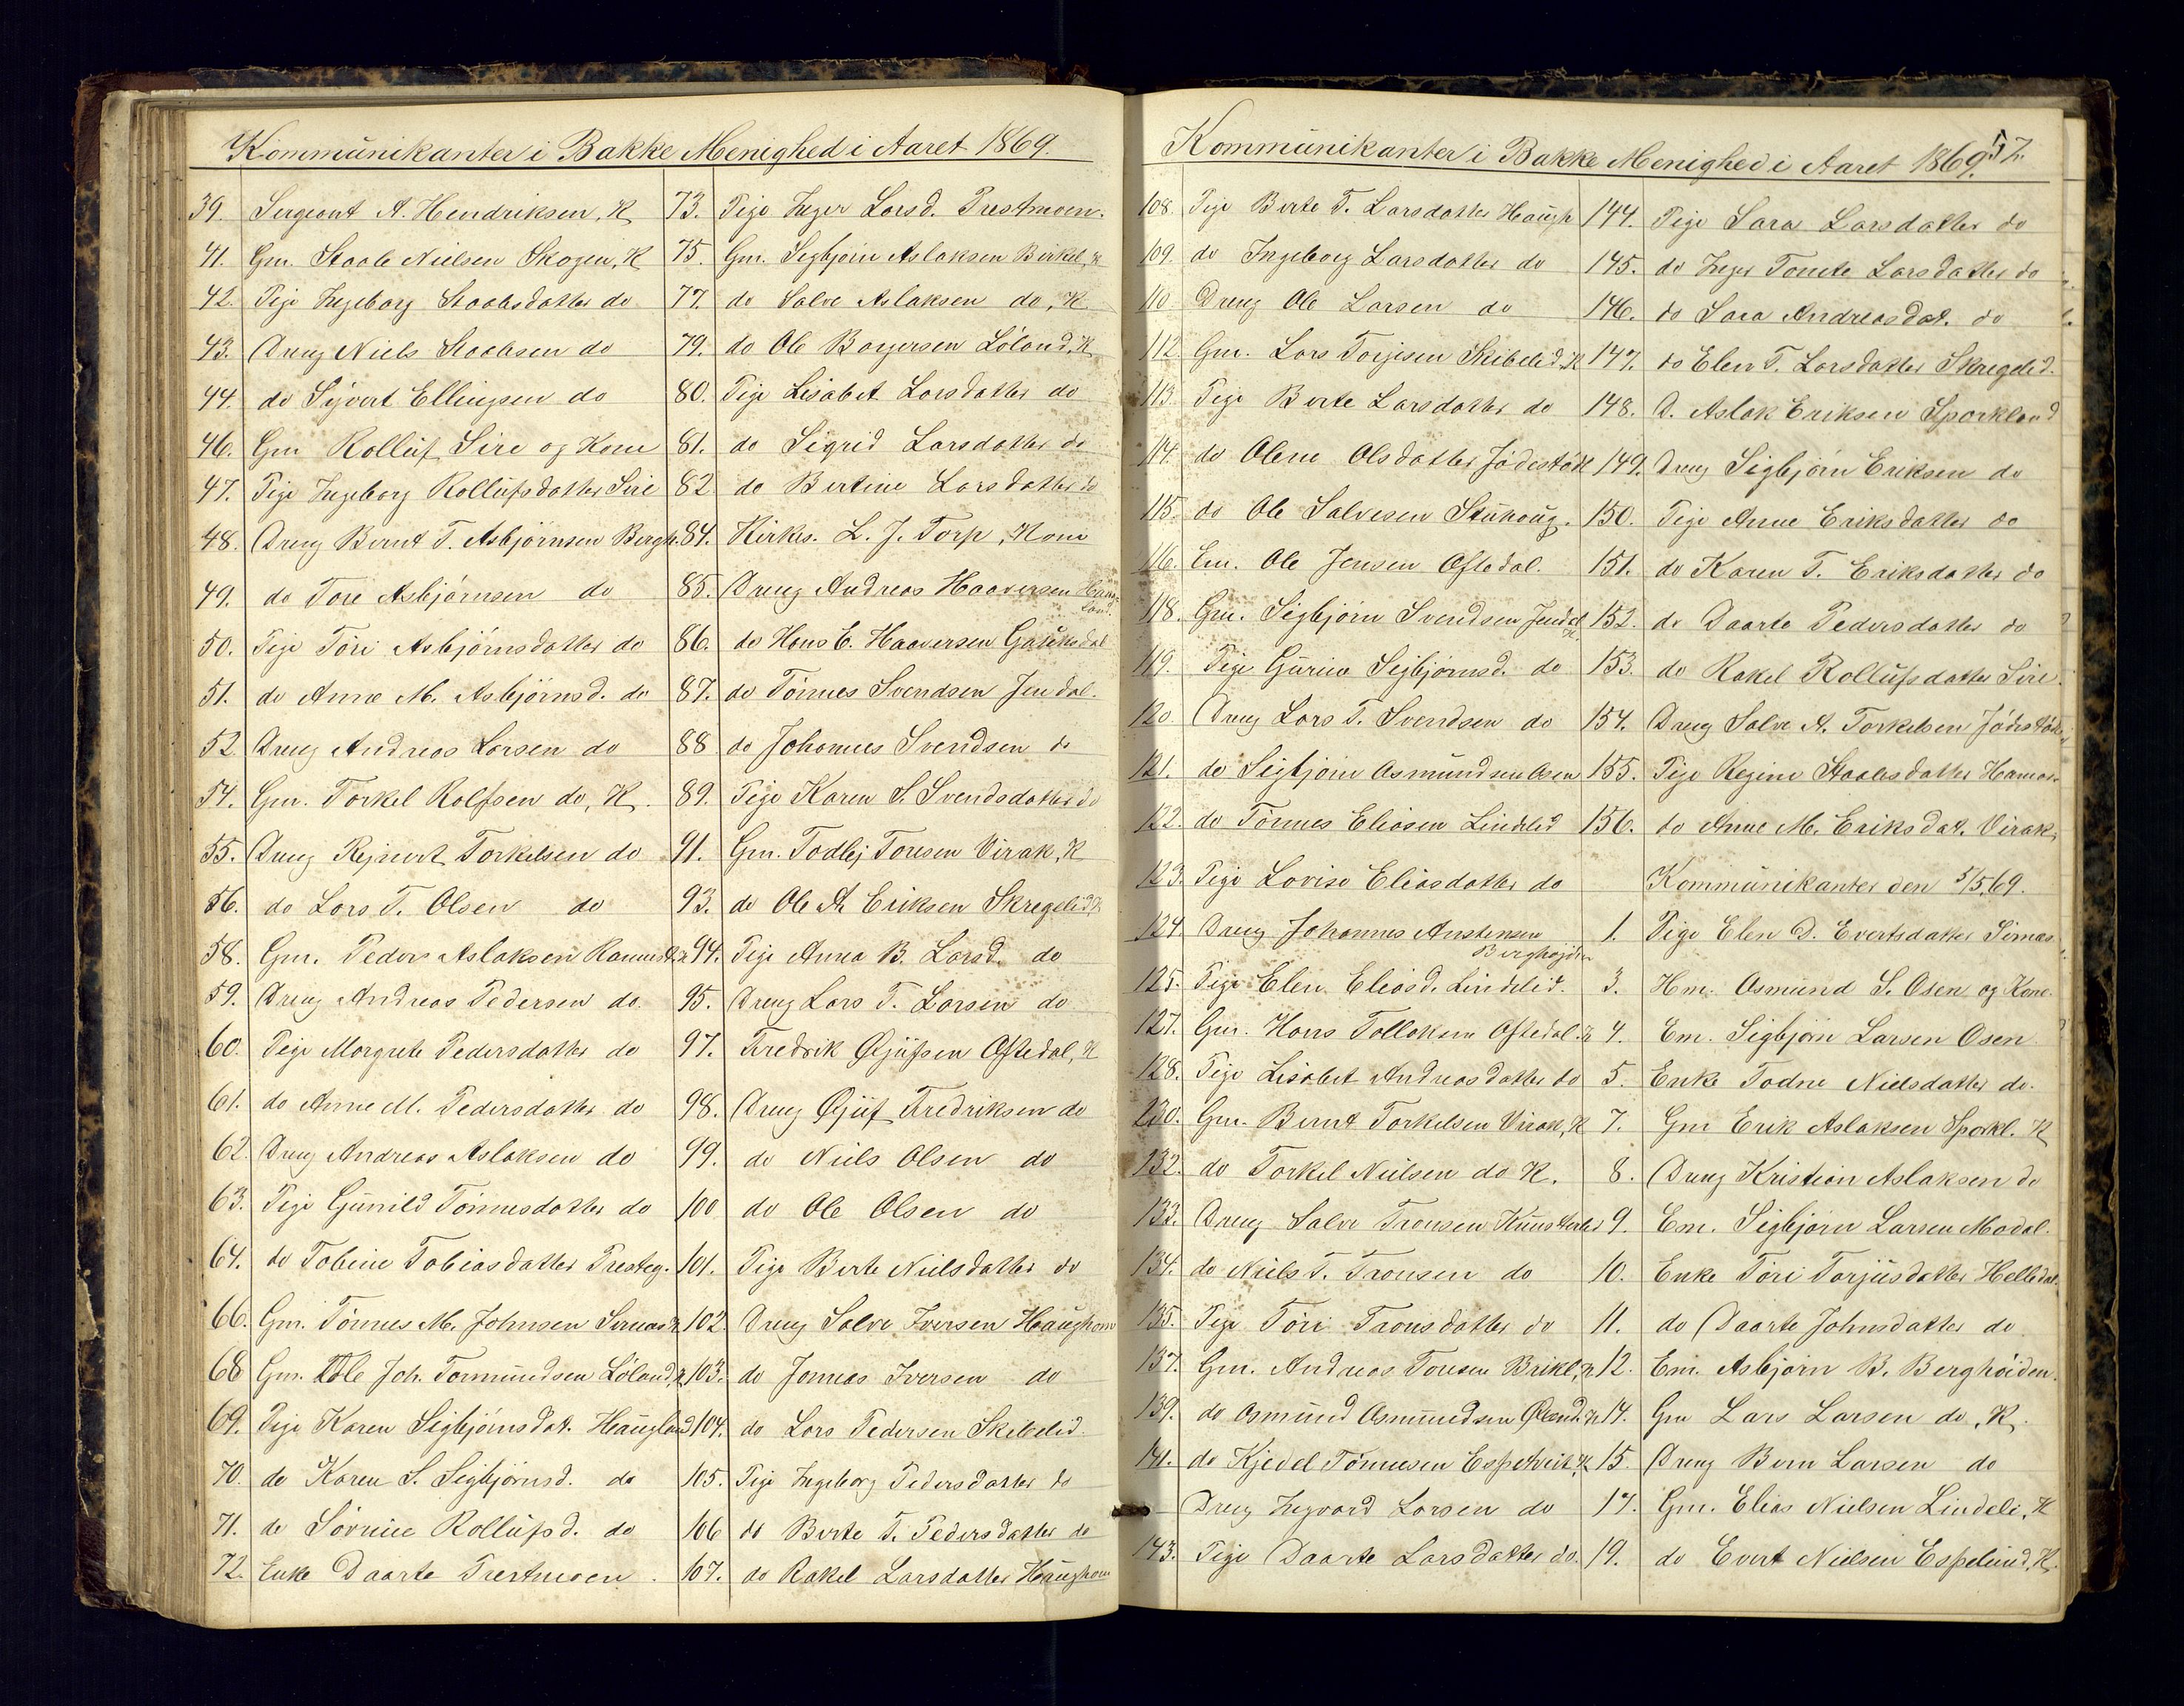 Kommunikanter i Bakke Menighed i Aaret 1869.
39. Sergeant A. Hendriksen, K
41. Gm. Staale Nielsen Skogen, K
42. Pige Ingeborg Staalesdatter do
43. Dreng Niels Staalesen do
44. do Sÿvert Ellingsen do
46. Gm Rolluf Sire og Kone
47. Pige Ingeborg Rollufsdatter Sire
48. Dreng Bernt T. Asbjörnsen Bergh.
49. do Tore Asbjörnsen do
50. Pige Töri Asbjörnsdatter do
51. do Anne M. Asbjörnsd. do
52. Dreng Andreas Larsen do
54. Gm. Torkel Rolfsen do, K.
55. Dreng Rejnert Torkelsen do
56. do Lars T. Olsen do
58. Gm. Peder Aslaksen
59. Dreng Andreas Pedersen do.
60. Pige Margrete Pedersdatter do
61. do Anne M. Pedersdatter do
62. Dreng Andreas Aslaksen do
63. Pige Gunild Tönnesdatter do
64. do Tobine Tobiasdatter Presteg.
66. Gm. Tönnes M. Johnsen Sirnes K
68 Gm. Ole Joh. Tormundsen Löland, K
69. Pige Karen Sigbjörnsdat. Haugland
70. do Karen S. Sigbjörnsd. do
71. do Sörine Rollufsd. do
72. Enke Daarte Prestmoen.
73. Pige Inger Larsd. Prestmoen.
75. Gm. Sigbjörn Aslaksen Birkel, K
77. do Salve Aslaksen do, K
79. do Ole Börgersen Löland, K
80. Pige Lisabet Larsdatter do
81. do Sigrid Larsdatter do
82. do Bertine Larsdatter do
84. Kirkes. L. J. Torp, Kone
85. Dreng Andreas Haaversen Haugland.
86. do Hans E. Haaversen Gauksdal
87. do Tönnes Svendsen Jendal.
88 do Johannes Svendsen do
89. Pige Karen S. Svendsdatter do
91. Gm. Todlej Toresen Virak, K
93. do Ole A Eriksen Skregelid, K
94. Pige Anna B. Larsd. do
95. Dreng Lars T. Larsen do
97. Fredrik Øÿüfsen Oftedal, K
98. Dreng Øÿüf Fredriksen do
99. do Niels Olsen do
100 do Ole Olsen do
101. Pige Berte Nielsdatter do
102. Dreng Salve Iversen Haughom
103. do Jonas Iversen do
104. do Lars Pedersen Skibelid.
105. Pige Ingeborg Pedersdatter do
106 do Berte T. Pedersdatter do
107. do Rakel Larsdatter Haughom
Kommunikanter i Bakke Menighed i Aaret 1869.
57.
108. Pige Berte T. Larsdatter Haugh
109. do Ingeborg Larsdatter do
110 Dreng Ole Larsen do
112. Gm. Lars Torjesen Skibelid, K
113. Pige Berte Larsdatter do
114. do Olene Olsdatter Jödestöl
115. do Ole Salvesen Stuhoug.
116. Em. Ole Jensen Oftedal.
118. Gm. Sigbjörn Svendsen Jendal K
119. Pige Gurine Sigbjörnsd. do
120. Dreng Lars T. Svendsen do
121. do Sigbjörn Osmundsen Osen
122. do Tönnes Eliasen Lindelid
123. Pige Lovise Eliasdatter do
124. Dreng Johannes Anstensen
Berghöjden
125. Pige Elen Eliasd. Lindelid.
127. Gm. Hans Tollaksen Oftedal. K
128. Pige Lisabet Andreasdatter do
130. Gm. Bernt Torkelsen Virak, K
132. do Torkel Nielsen do K.
133. Dreng Salve Tronsen
134. do Niels T. Tronsen do
135. Pige Töri Tronsdatter do
137. Gm. Andreas Toresen Brikl, K
139. do Osmund Osmundsen
141. do Kjedel Tönnesen Espetveit, K
Dreng Ingvard Larsen do
143. Pige Daarte Larsdatter do.
144. Pige Sara Larsdatter do
145. do Inger Tonete Larsdatter do
146. do Sara Andreasdat. do
147. do Elen T. Larsdatter Skregelid.
148. D. Aslak Eriksen Sporkland
149. Dreng Sigbjörn Eriksen do
150. Pige Anne Eriksdatter do
151. do Karen T. Eriksdatter do
152. do Daarte Pedersdatter do
153. do Rakel Rollufsdatter Sire.
154. Dreng Salve A. Torkelsen Jödestöl
155. Pige Regine Staalesdatter
156. do Anne M. Eriksdat. Virak,
Kommunikanter den 5/5 69.
1. Pige Elen D. Evertsdatter Sirnas.
3. Hm. Osmund S. Osen og Kone.
4. Em. Sigbjörn Larsen Osen.
5. Enke Todne Nielsdatter do.
7. Gm Erik Aslaksen Sporkl. K
8. Dreng Kristian Aslaksen do
9. Em. Sigbjörn Larsen Modal.
10. Enke Töri Torjusdatter Helledal.
11. do Daarte Johnsdatter do
12. Em. Asbjörn B. Berghöiden.
14. Gm Lars Larsen do, K.
15. Dreng Bern Larsen do
17. Gm. Elias Nielsen Lindeli, K
19. do Evert Nielsen Espelund, K.